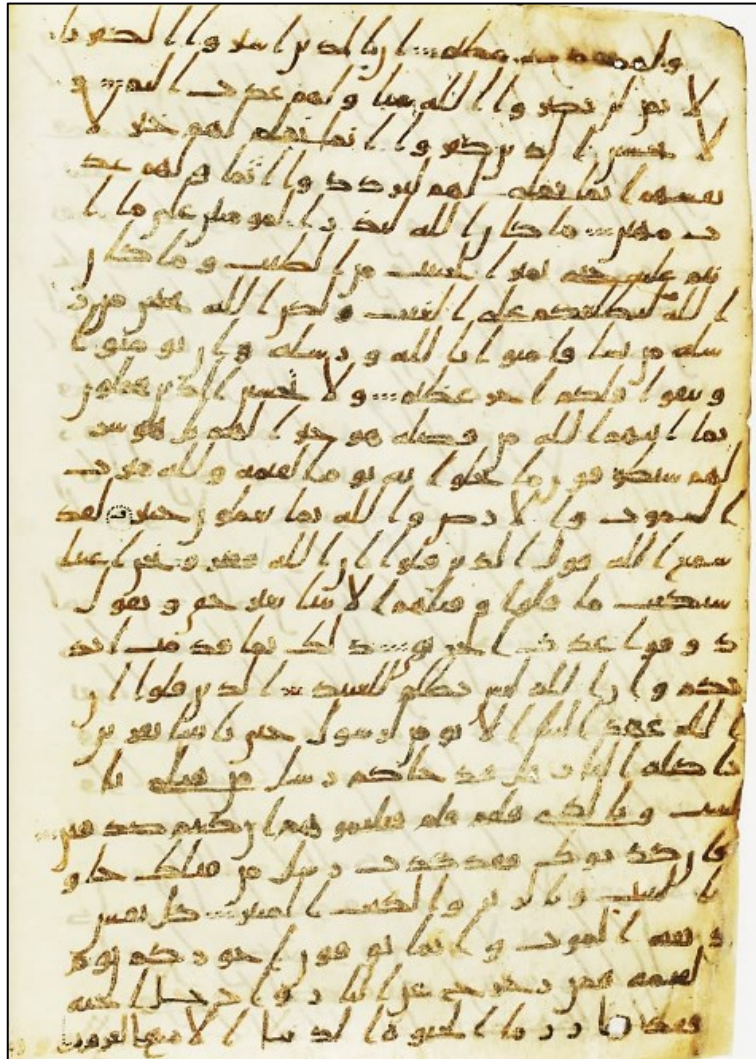 ولهم عذب عظيم ان الذين اشتروا الكفر با
لايمن لن يضروا الله شيا ولهم عذب اليم و
لا يحسبن الذين كفروا انما نملي لهم خير لا
نفسهم انما نملي لهم ليزددوا اثما ولهم عذ
ب مهين ما كان الله ليذر المومنين على ما ا
نتم عليه حتى يميز الخبيث من الطيب وما كان
الله ليطلعكم على الغيب ولكن الله يجتبي من ر
سله من يشا فامنوا بالله ورسله وان تومنوا
وتتقوا فلكم اجر عظيم ولا يحسبن الذين يبخلون
بما اتيهم الله من فضله هو خيرا لهم بل هو شر
لهم سيطوقون ما بخلوا به يوم القيمة ولله ميرث
السموت والارض والله بما تعملون خبير لقد
سمع الله قول الذين قلوا ان الله فقير ونحن اغنيا
سنكتب ما قلوا وقتلهم الانبيا بغير حق ونقول
ذوقوا عذب الحريق ذلك بما قدمت ايد
يكم وان الله ليس بظلم للعبيد الذين قلوا ان
الله عهد الينا الا نومن لرسول حتى ياتينا بقربن
تاكله النار قل قد جاكم رسل من قبلي با
لبينت وبالذي قلتم فلم قتلتموهم ان كنتم صدقين
فان كذبوك فقد كذب رسل من قبلك جاو
بالبينت وبالزبر والكتب المنير كل نفس
ذيقة الموت وانما توفون اجوركم يوم
القيمة فمن زحزح عن النار وادخل الجنة
فقد فاز وما الحيوة الدنيا الا متع الغرور